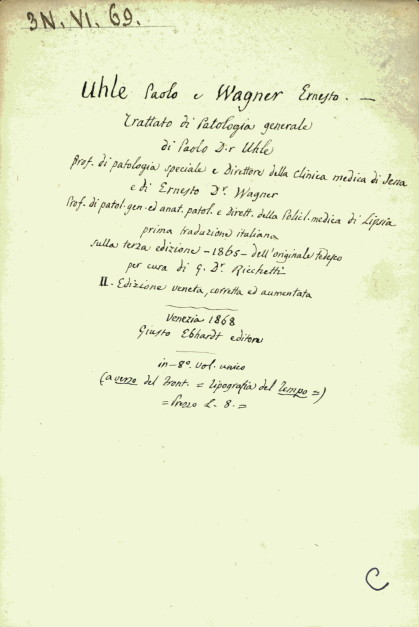 3N. VI. 69.
Uhle Paolo e Wagner Ernesto. —
Trattato di Patologia generale
di Paolo D.r Uhle
Prof. di patologia speciale e Direttore della Clinica medica di Jena
e di Ernesto Dr. Wagner
Prof. di patol. gen. ed anat. patol. e dirett. della Policl. medica di Lipsia
prima traduzione italiana
sulla terza edizione - 1865 - dell'originale tedesco
per cura di G. Dr. Ricchetti
II. Edizione veneta, corretta ed aumentata
Venezia 1868
Giusto Ebhardt editore
in-8º. vol. unico
(a verso del Front. = Tipografia del Tempo =)
= Prezzo L. 8. =
C